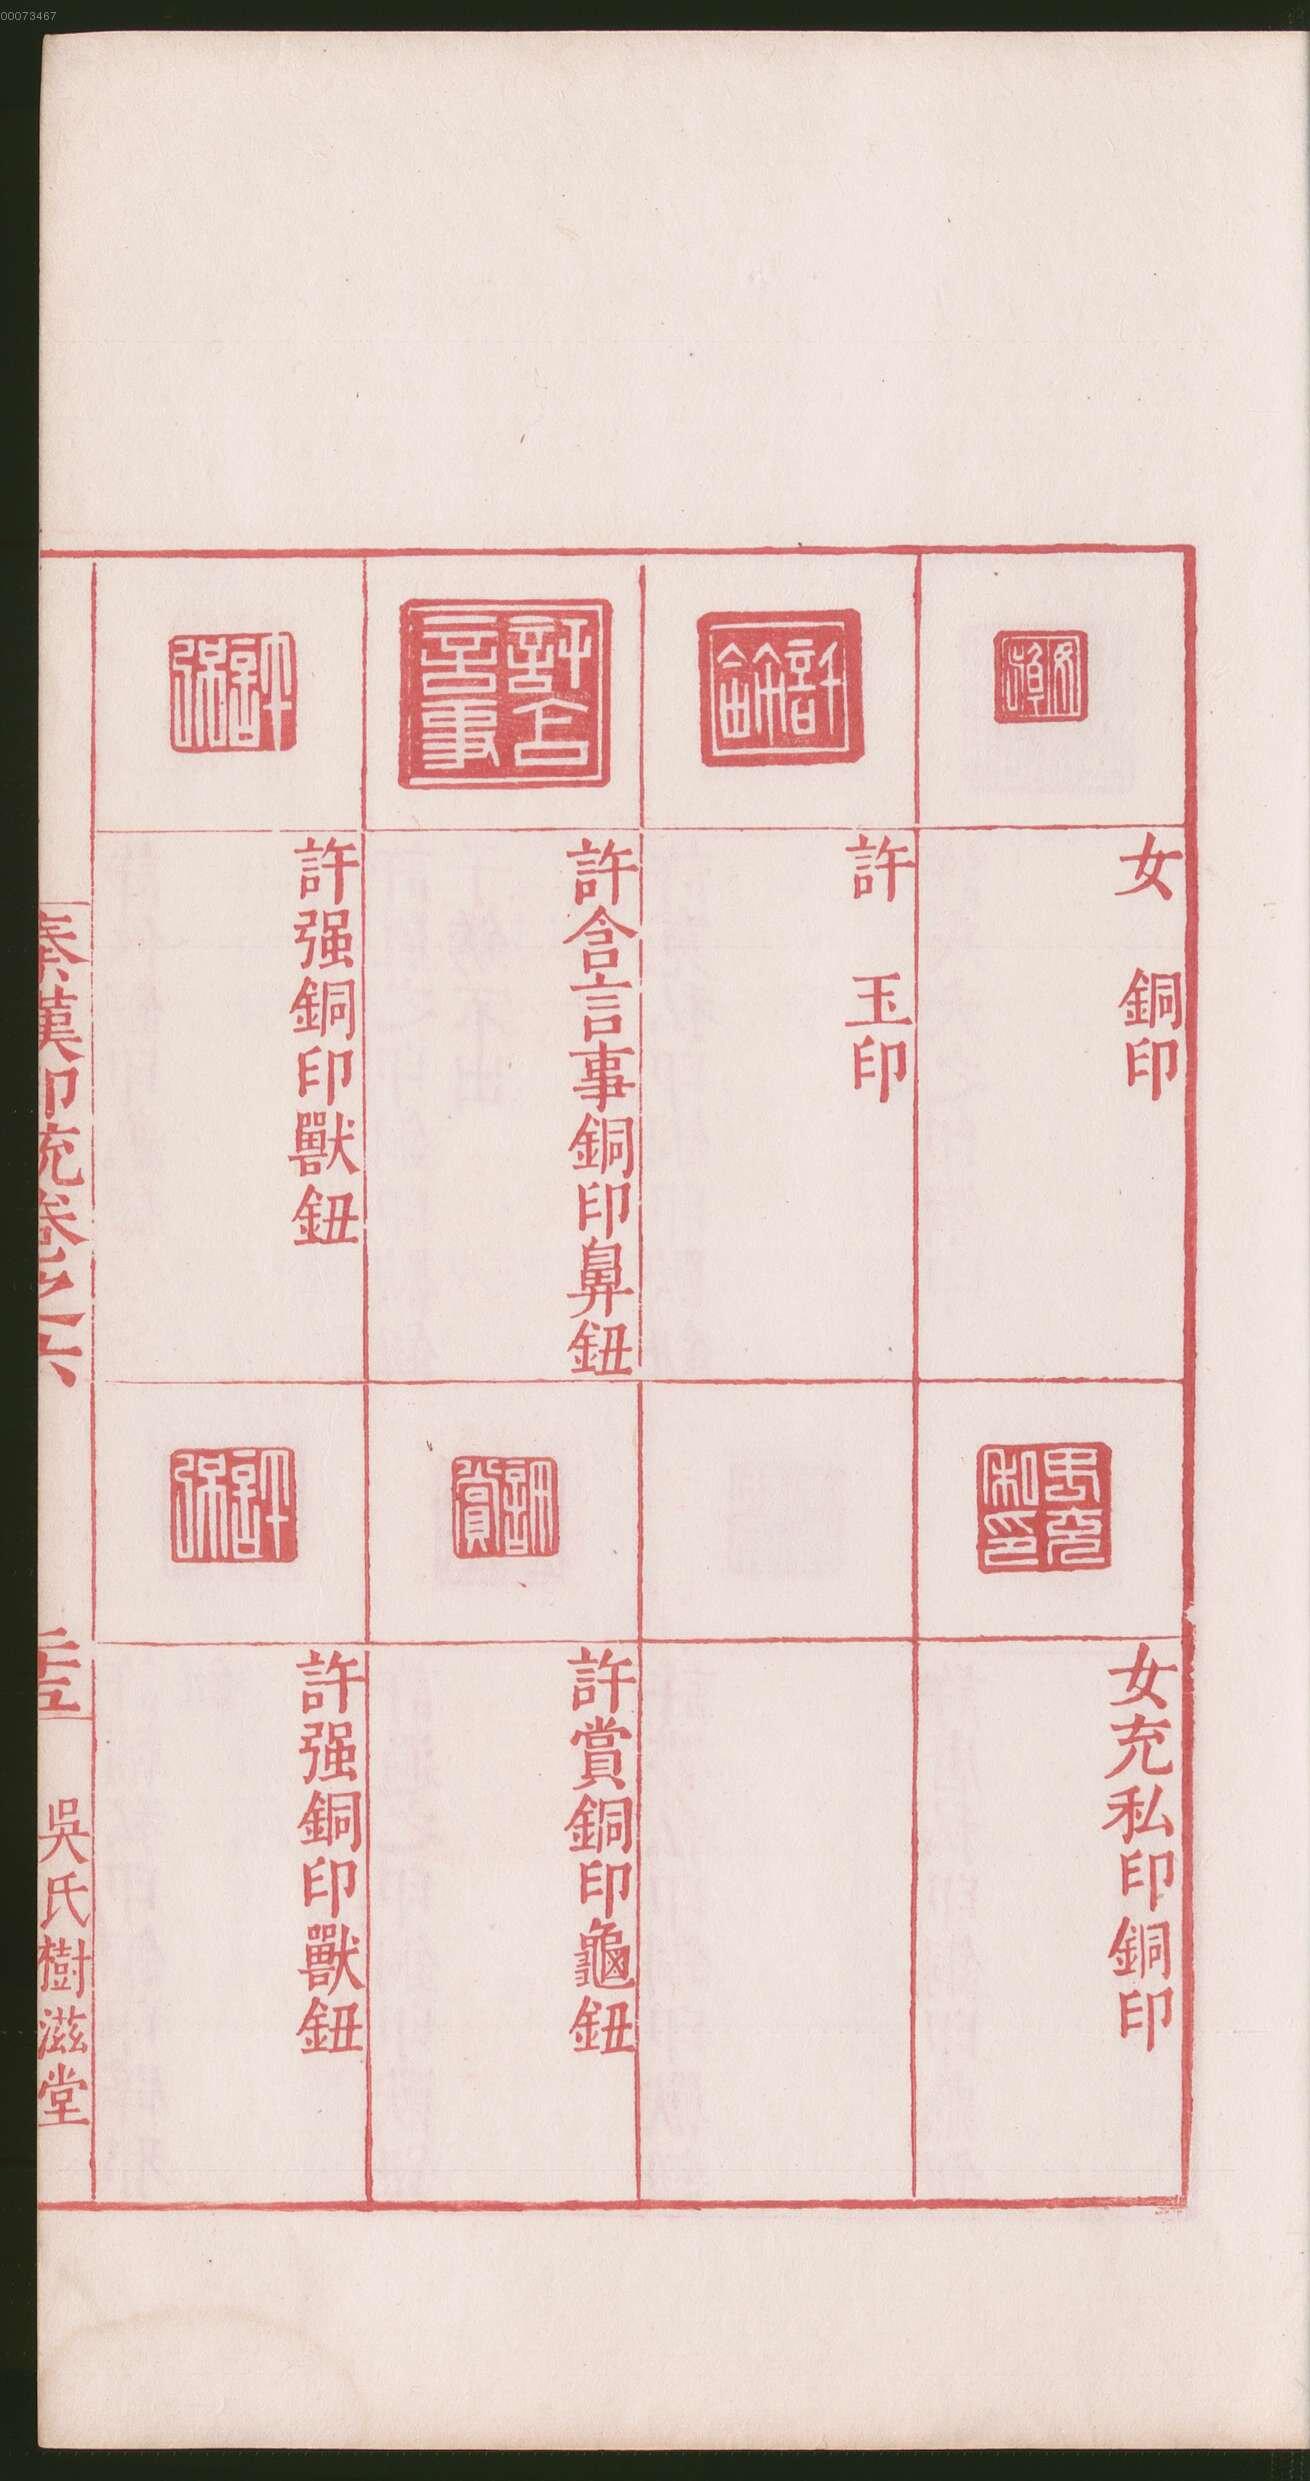 00073467
女　銅印
許　玉印
許含言事銅印鼻鈕
許强銅印獸鈕
女充私印銅印
許賞銅印龜鈕
許强銅印獸鈕
許含言事
許强
許賞
許强
秦漢印統卷之六
吳氏樹滋堂